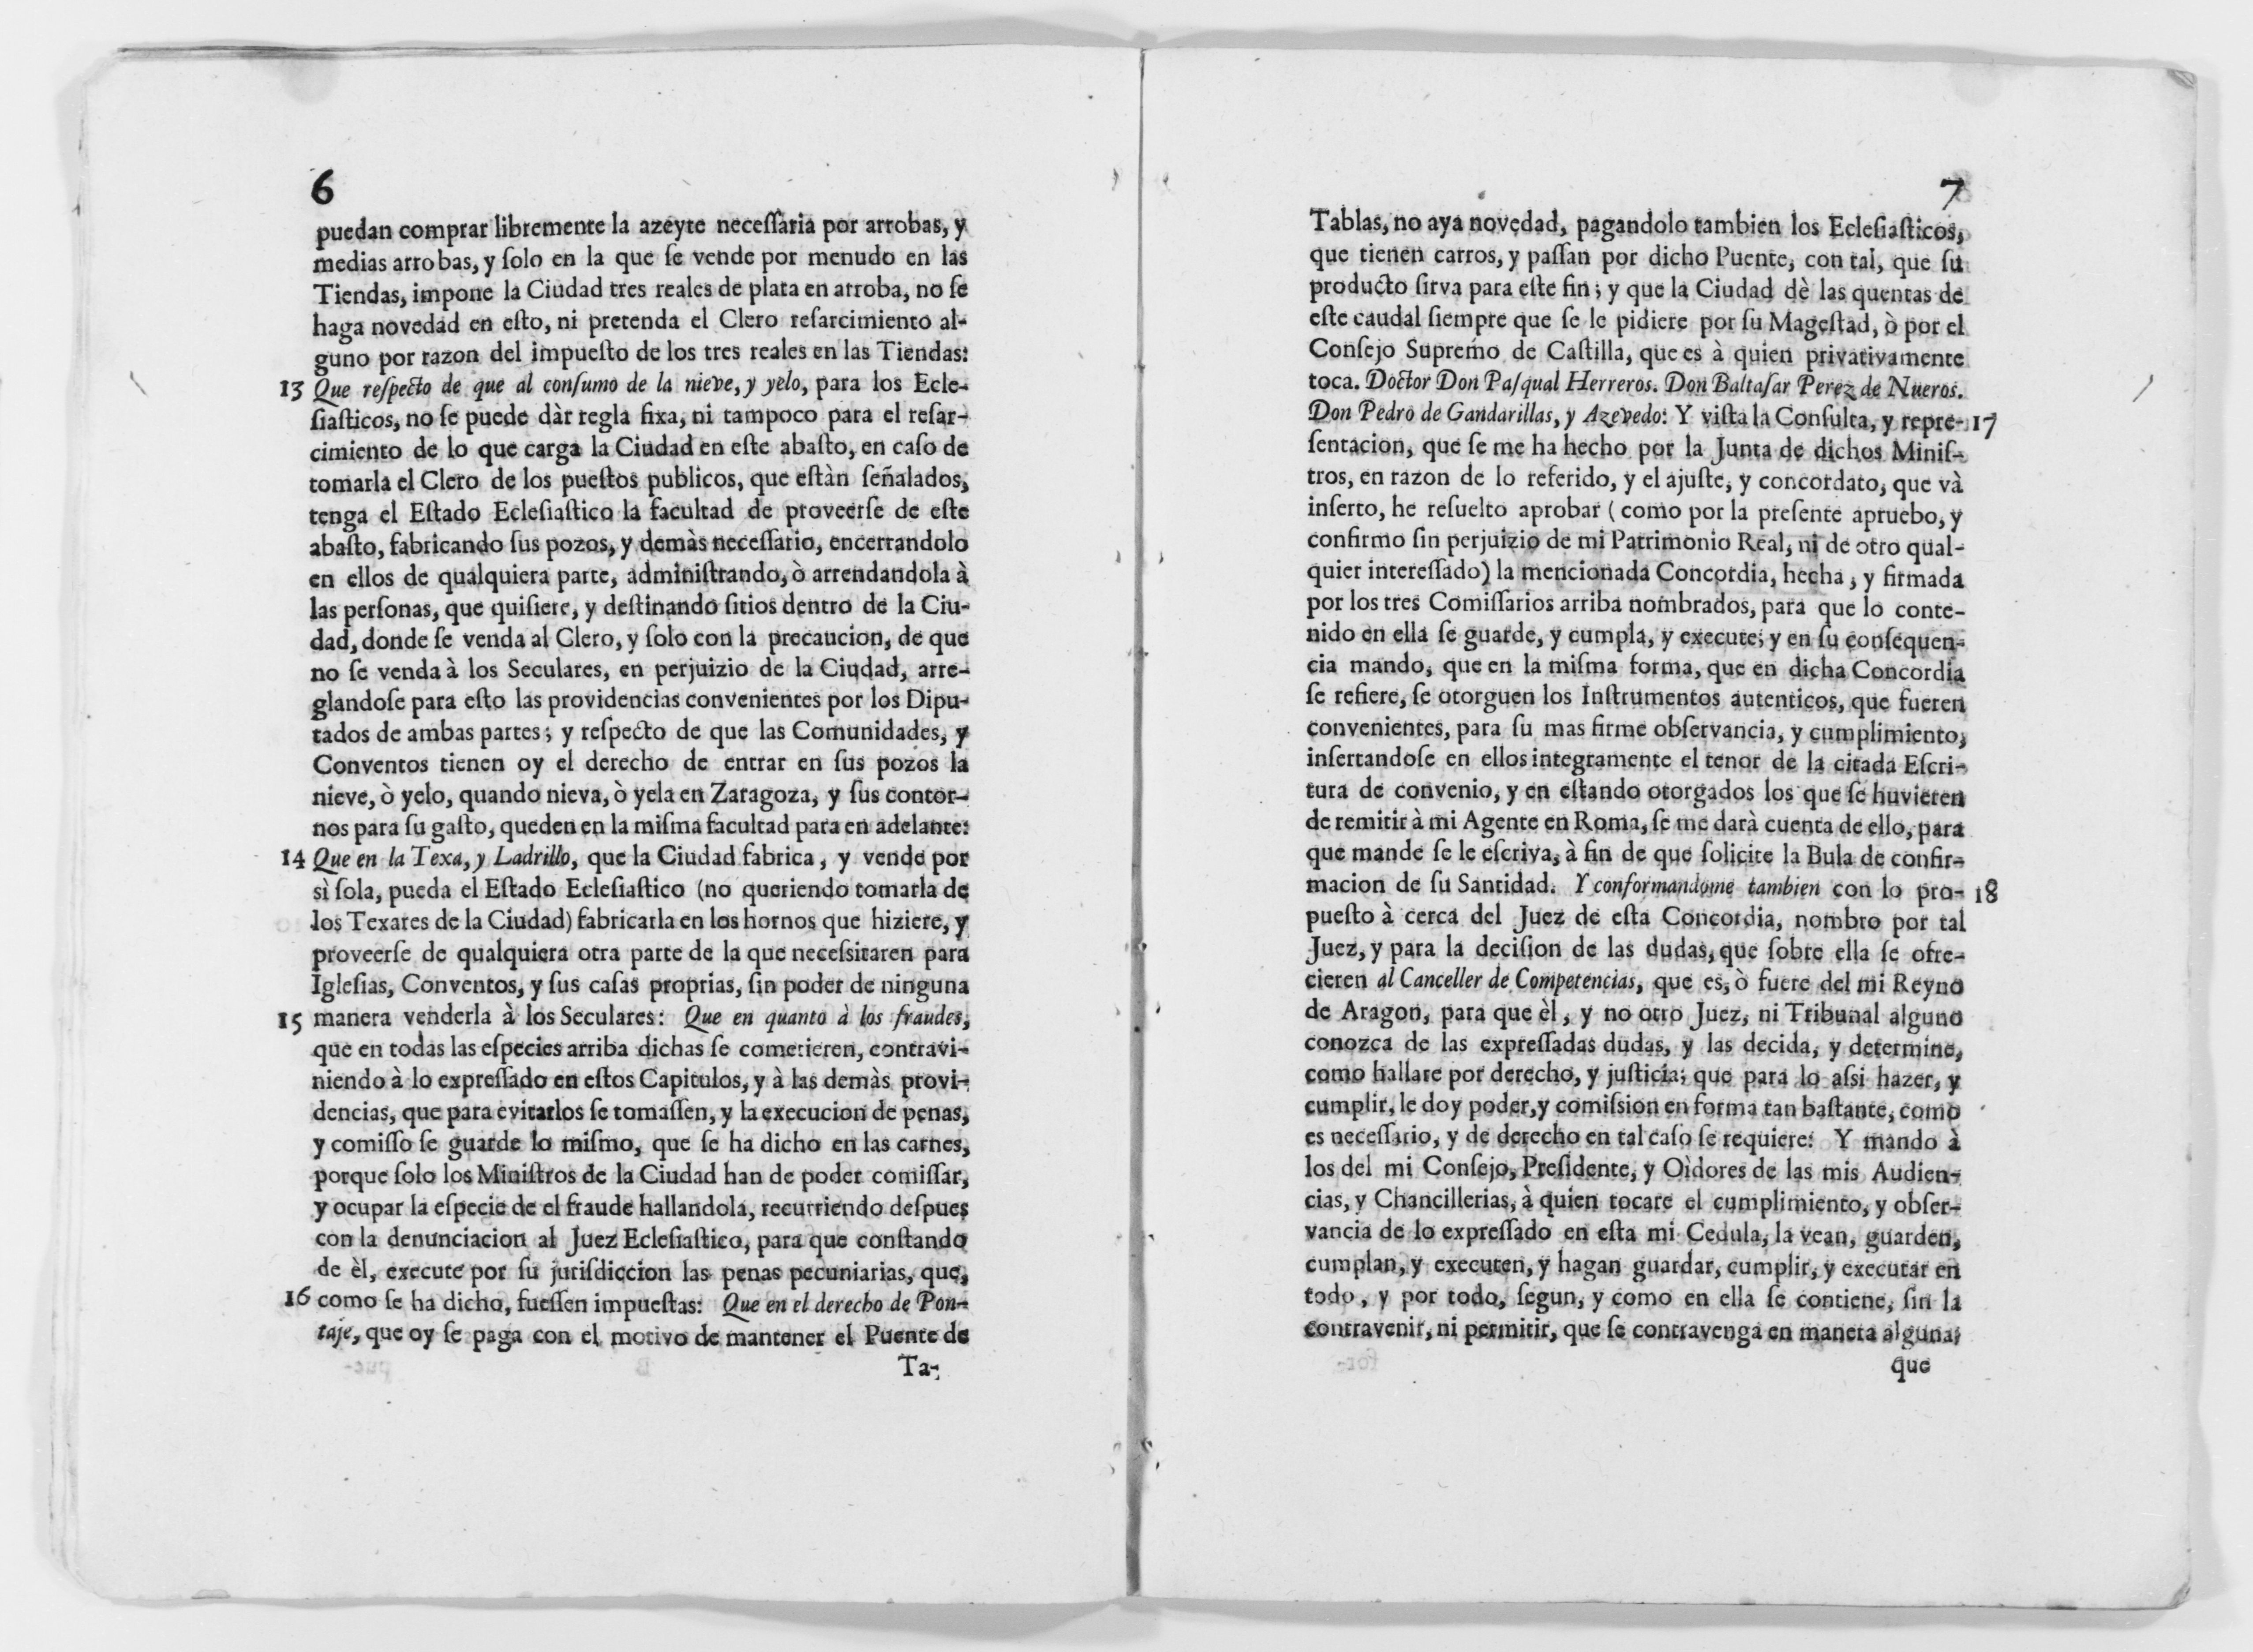 6
puedan comprar libremente la azeyte neceſſaria por arrobas, y
medias arrobas, y ſolo en la que ſe vende por menudo en las
Tiendas, impone la Ciudad tres reales de plata en arroba, no ſe
haga novedad en eſto, ni pretenda el Clero reſarcimiento al-
guno por razon del impueſto de los tres reales en las Tiendas:
13 Que reſpecto de que al conſumo de la nieve, y yelo, para los Ecle-
ſiaſticos, no ſe puede dàr regla fixa, ni tampoco para el reſar-
cimiento de lo que carga la Ciudad en eſte abaſto, en caſo de
tomarla el Clero de los pueſtos publicos, que eſtàn ſeñalados,
tenga el Eſtado Ecleſiaſtico la facultad de proveerſe de eſte
abaſto, fabricando ſus pozos, y demàs neceſſario, encerrandolo
en ellos de qualquiera parte, adminiſtrando, ò arrendandola à
las perſonas, que quiſiere, y deſtinando ſitios dentro de la Ciu-
dad, donde ſe venda al Clero, y ſolo con la precaucion, de que
no ſe venda à los Seculares, en perjuizio de la Ciudad, arre-
glandoſe para eſto las providencias convenientes por los Dipu-
tados de ambas partes; y reſpecto de que las Comunidades, y
Conventos tienen oy el derecho de entrar en ſus pozos la
nieve, ò yelo, quando nieva, ò yela en Zaragoza, y ſus contor-
nos para ſu gaſto, queden en la miſma facultad para en adelante:
14 Que en la Texa, y Ladrillo, que la Ciudad fabrica, y vende por
sì ſola, pueda el Eſtado Ecleſiaſtico (no queriendo tomarla de
los Texares de la Ciudad) fabricarla en los hornos que hiziere, y
proveerſe de qualquiera otra parte de la que neceſsitaren para
Igleſias, Conventos, y ſus caſas proprias, ſin poder de ninguna
15 manera venderla à los Seculares: Que en quanto à los fraudes,
que en todas las eſpecies arriba dichas ſe cometieren, contravi-
niendo à lo expreſſado en eſtos Capitulos, y à las demàs provi-
dencias, que para evitarlos ſe tomaſſen, y la execucion de penas,
y comiſſo ſe guarde lo miſmo, que ſe ha dicho en las carnes,
porque ſolo los Miniſtros de la Ciudad han de poder comiſſar,
y ocupar la eſpecie de el fraude hallandola, recurriendo deſpues
con la denunciacion al Juez Ecleſiaſtico, para que conſtando
de èl, execute por ſu juriſdiccion las penas pecuniarias, que,
16 como ſe ha dicho, fueſſen impueſtas: Que en el derecho de Pon-
taje, que oy ſe paga con el motivo de mantener el Puente de
Ta-
7
Tablas, no aya novedad, pagandolo tambien los Ecleſiaſticos,
que tienen carros, y paſſan por dicho Puente, con tal, que ſu
producto ſirva para eſte fin; y que la Ciudad dè las quentas de
eſte caudal ſiempre que ſe le pidiere por ſu Mageſtad, ò por el
Conſejo Supremo de Caſtilla, que es à quien privativamente
toca. Doctor Don Paſqual Herreros. Don Baltaſar Perez de Nueros.
Don Pedro de Gandarillas, y Azevedo: Y viſta la Conſulta, y repre- 17
ſentacion, que ſe me ha hecho por la Junta de dichos Miniſ-
tros, en razon de lo referido, y el ajuſte, y concordato, que và
inſerto, he reſuelto aprobar (como por la preſente apruebo, y
confirmo ſin perjuizio de mi Patrimonio Real, ni de otro qual-
quier intereſſado) la mencionada Concordia, hecha, y firmada
por los tres Comiſſarios arriba nombrados, para que lo conte-
nido en ella ſe guarde, y cumpla, y execute; y en ſu conſequen-
cia mando, que en la miſma forma, que en dicha Concordia
ſe refiere, ſe otorguen los Inſtrumentos autenticos, que fueren
convenientes, para ſu mas firme obſervancia, y cumplimiento,
inſertandoſe en ellos integramente el tenor de la citada Eſcri-
tura de convenio, y en eſtando otorgados los que ſe huvieren
de remitir à mi Agente en Roma, ſe me darà cuenta de ello, para
que mande ſe le eſcriva, à fin de que ſolicite la Bula de confir-
macion de ſu Santidad. Y conformandome tambien con lo pro- 18
pueſto à cerca del Juez de eſta Concordia, nombro por tal
Juez, y para la deciſion de las dudas, que ſobre ella ſe ofre-
cieren al Canceller de Competencias, que es, ò fuere del mi Reyno
de Aragon, para que èl, y no otro Juez, ni Tribunal alguno
conozca de las expreſſadas dudas, y las decida, y determine,
como hallare por derecho, y juſticia; que para lo aſsi hazer, y
cumplir, le doy poder, y comiſsion en forma tan baſtante, como
es neceſſario, y de derecho en tal caſo ſe requiere: Y mando à
los del mi Conſejo, Preſidente, y Oìdores de las mis Audien-
cias, y Chancillerias, à quien tocare el cumplimiento, y obſer-
vancia de lo expreſſado en eſta mi Cedula, la vean, guarden,
cumplan, y executen, y hagan guardar, cumplir, y executar en
todo, y por todo, ſegun, y como en ella ſe contiene, ſin la
contravenir, ni permitir, que ſe contravenga en manera alguna;
que